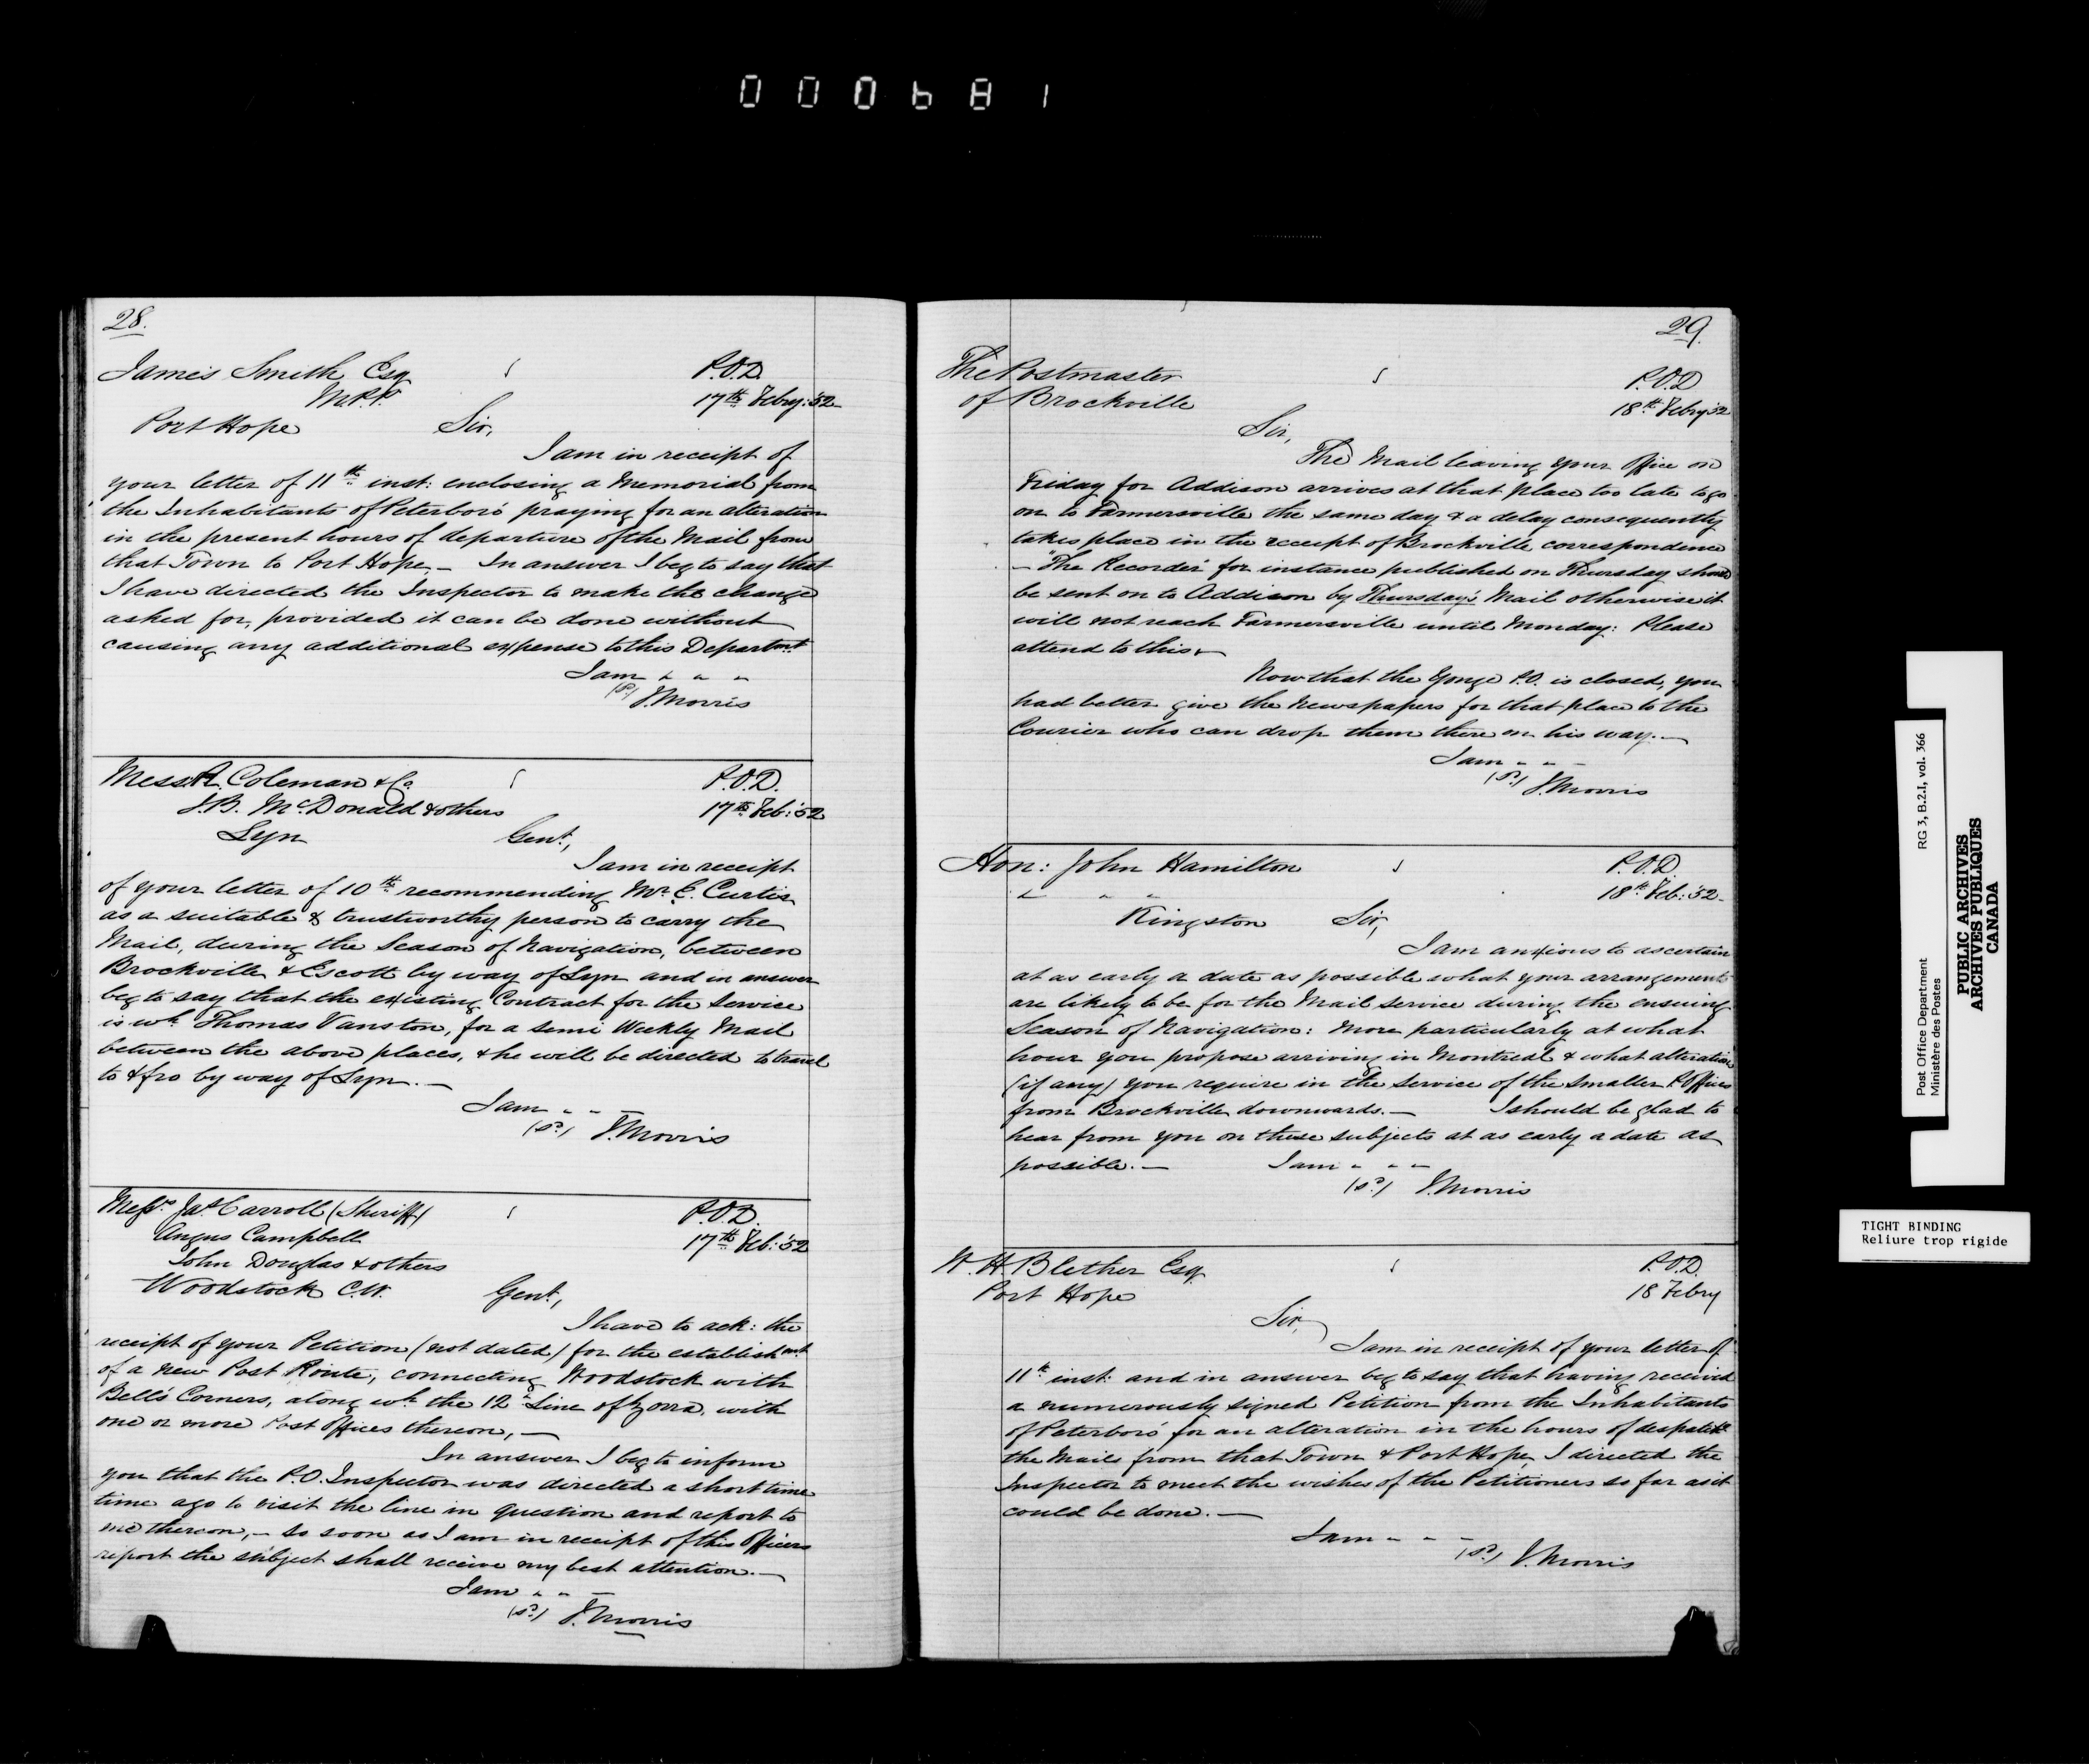 000681
28.
James Smith Esq
M.P.P.
Port Hope
P.O.D.
17th Febry: 52
Sir,
I am in receipt of
your letter of 11th inst: enclosing a Memorial from
the Inhabitants of Peterboro' praying for an alteration
in the present hours of departure of the Mail from
that Town to Port Hope. — In answer I beg to say that
I have directed the Inspector to make the change
asked for, provided it can be done without
causing any additional expense to this Departmt
I am " " "
(sd) J. Morris
Messrs R. Coleman & Co.
J.B. McDonald & others
Lyn
P.O.D.
17th Feb: '52
Gent,
I am in receipt
of your letter of 10th recommending Mr. E. Curtis
as a suitable & trustworthy person to carry the
Mail, during the Season of Navigation, between
Brockville & Escott by way of Lyn and in answer
beg to say that the existing Contract for the Service
is wh Thomas Vanston, for a semi Weekly Mail
between the above places, & he will be directed to travel
to & fro by way of Lyn. —
I am " " —
(sd) J. Morris
Messrs Jas Carroll (Sheriff)
Angus Campbell
John Douglas & others
Woodstock C.W.
P.O.D.
17th Feb: '52
Gent,
I have to ack: the
receipt of your Petition (not dated) for the establishmt
of a new Post Route, connecting Woodstock with
Bell's Corners, along wh the 12th Line of Zorra, with
one or more Post Offices thereon, —
In answer I beg to inform
you that the P.O. Inspector was directed a short time
time ago to visit the line in question and report to
me thereon, — so soon as I am in receipt of this Officers
report the subject shall receive my best attention. —
I am " " —
(sd) J. Morris
29.
The Postmaster
of Brockville
P.O.D
18th Febry 52
Sir,
The Mail leaving your Office on
Friday for Addison arrives at that place too late to go
on to Farmersville the same day & a delay consequently
takes place in the receipt of Brockville correspondence
— "The Recorder" for instance published on Thursday should
be sent on to Addison by Thursday's Mail otherwise it
will not reach Farmersville until Monday: Please
attend to this. —
Now that the Yonge P.O. is closed, you
had better give the Newspapers for that place to the
Courier who can drop them there on his way. —
I am " " —
(sd) J. Morris
Hon: John Hamilton
" " "
Kingston
P.O.D.
18th Feb: '52
Sir,
I am anxious to ascertain
at as early a date as possible what your arrangements
are likely to be for the Mail service during the ensuing
Season of Navigation: more particularly at what
hour you propose arriving in Montreal & what alteration
(if any) you require in the Service of the smaller P. Offices
from Brockville downwards. — I should be glad to
hear from you on these subjects at as early a date as
possible. — I am " " —
(sd) J. Morris
W. H. Blether Esq.
Port Hope
P.O.D.
18 Febry
Sir,
I am in receipt of your letter of
11th inst: and in answer beg to say that having received
a numerously signed Petition from the Inhabitants
of Peterboro' for an alteration in the hours of despatch
the Mails from that Town & Port Hope, I directed the
Inspector to meet the wishes of the Petitioners so far as it
could be done. —
I am " " —
(sd) J. Morris
Post Office Department
Ministère des Postes
RG 3, B.2.I, vol. 366
PUBLIC ARCHIVES
ARCHIVES PUBLIQUES
CANADA
TIGHT BINDING
Reliure trop rigide